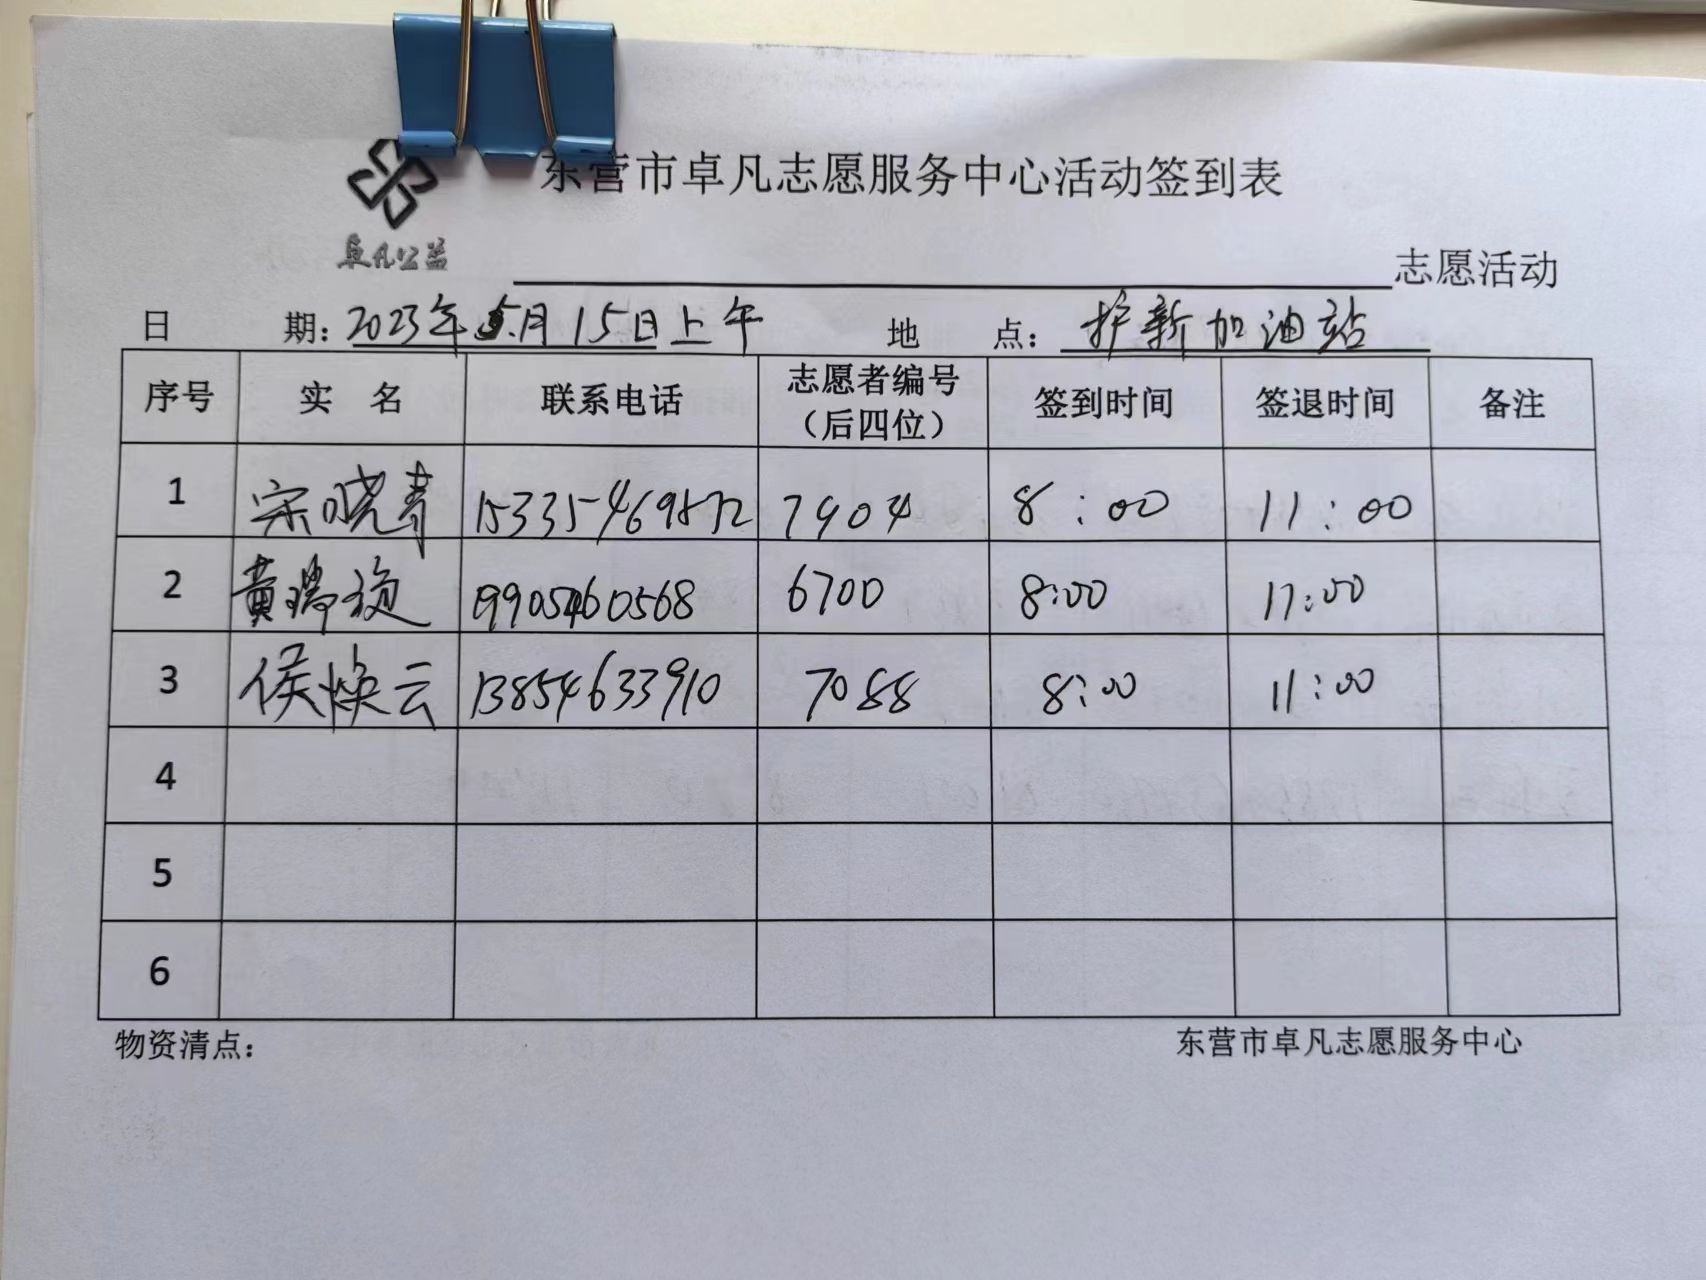 东营市卓凡志愿服务中心活动签到表
卓凡公益
志愿活动
日 期: 2023年5月15日上午 地 点: 护新加油站
序号 实 名 联系电话 志愿者编号(后四位) 签到时间 签退时间 备注
1 宋晓青 7904 8:00 11:00
2 黄瑞 19905460568 6700 8:00 11:00
3 侯焕云 13854633910 7088 8:00 11:00
4
5
6
物资清点: 东营市卓凡志愿服务中心